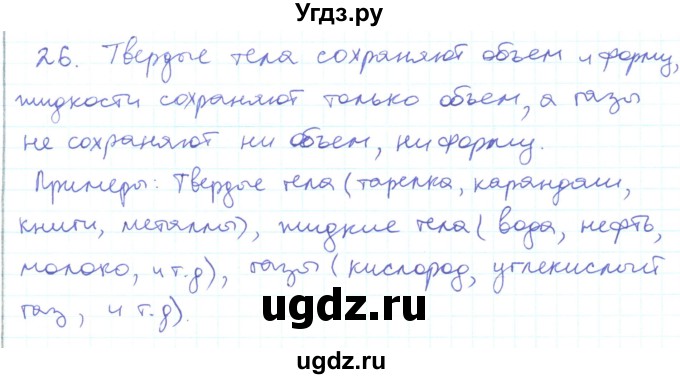 Угдз.ру
26. Твердые тела сохраняют объем и форму,
жидкости сохраняют только объем, а газы
не сохраняют ни объем, ни форму.
Примеры: Твердые тела (тарелка, карандаш,
книги, металлы), жидкие тела (вода, нефть,
молоко, и т.д), газы (кислород, углекислый
газ, и т.д).
ugdz.ru
ugdz.ru